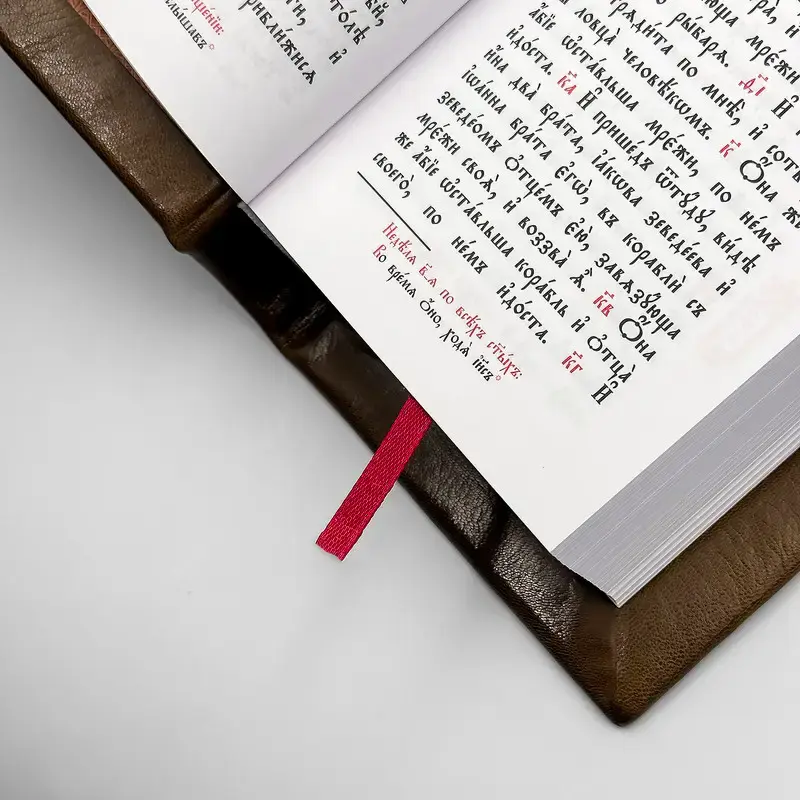 слышавъ
и҆
приближи́сѧ
мрє́жи
рыбарѧ̑. ѳ҃і И҆
грѧди́та по мнѣ̀, и҆ сотв
ловца̑ человѣ́кѡмъ. к҃ Ѻ҆́на же
а҆́бїе ѡ҆ста̑вльша мрє́жи, по не́мъ
и҆до́ста. к҃а И҆ прише́дъ ѿтꙋ́дꙋ, ви́дѣ
и҆́на два̀ бра̑та, і҆а́кѡва зеведе́ева и҆
і҆ѡа́нна бра́та є҆гѡ̀, въ кораблѝ съ
зеведе́омъ ѻ҆тце́мъ є҆ю̀, завѧзꙋ̑юща
мрє́жи своѧ̑, и҆ воззва̀ ѧ҆̀. к҃в Ѻ҆́на
же а҆́бїе ѡ҆ста̑вльша кора́бль и҆ ѻ҆тца̀
своего̀, по не́мъ и҆до́ста. к҃г И҆
Недѣ́лѧ в҃-ѧ по всѣ́хъ ст҃ы́хъ:
Во вре́мѧ ѻ҆́но, ходѧ̀ і҆и҃съ